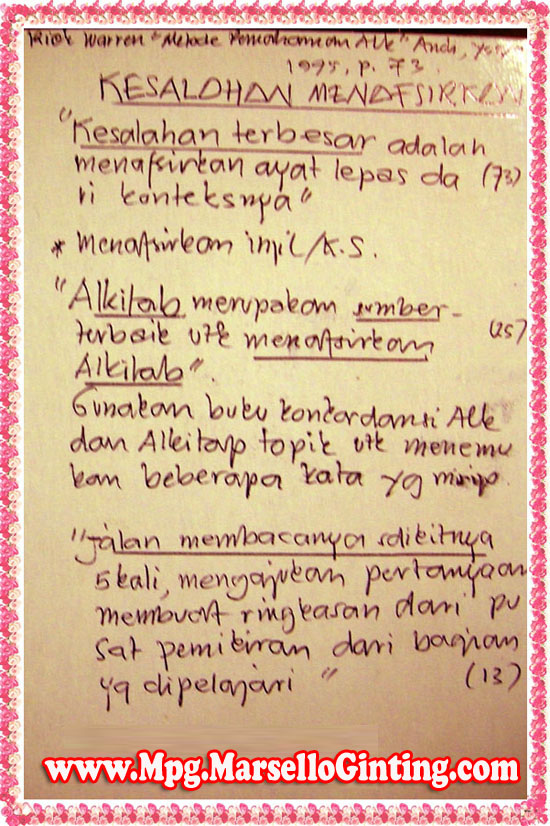 Rick Warren "Metode Pemahaman Alk" Andi, 
1995, p. 73.
KESALAHAN MENAFSIRKAN
"Kesalahan terbesar adalah
menafsirkan ayat lepas da (73)
ri konteksnya"
* Menafsirkan injil/K.S.
"Alkitab merupakan sumber
terbaik utk menafsirkan (25)
Alkitab".
Gunakan buku konkordansi Alk
dan Alkitap topik utk menemu
kan beberapa kata yg mirip.
"Jalan membacanya sdikitnya
5 kali, mengajukan pertanyaan
membuat ringkasan dari pu
sat pemikiran dari bagian
yg dipelajari" (13)
www.Mpg.MarselloGinting.com